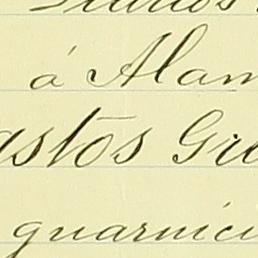 á Alam
astos Gre
guarnici